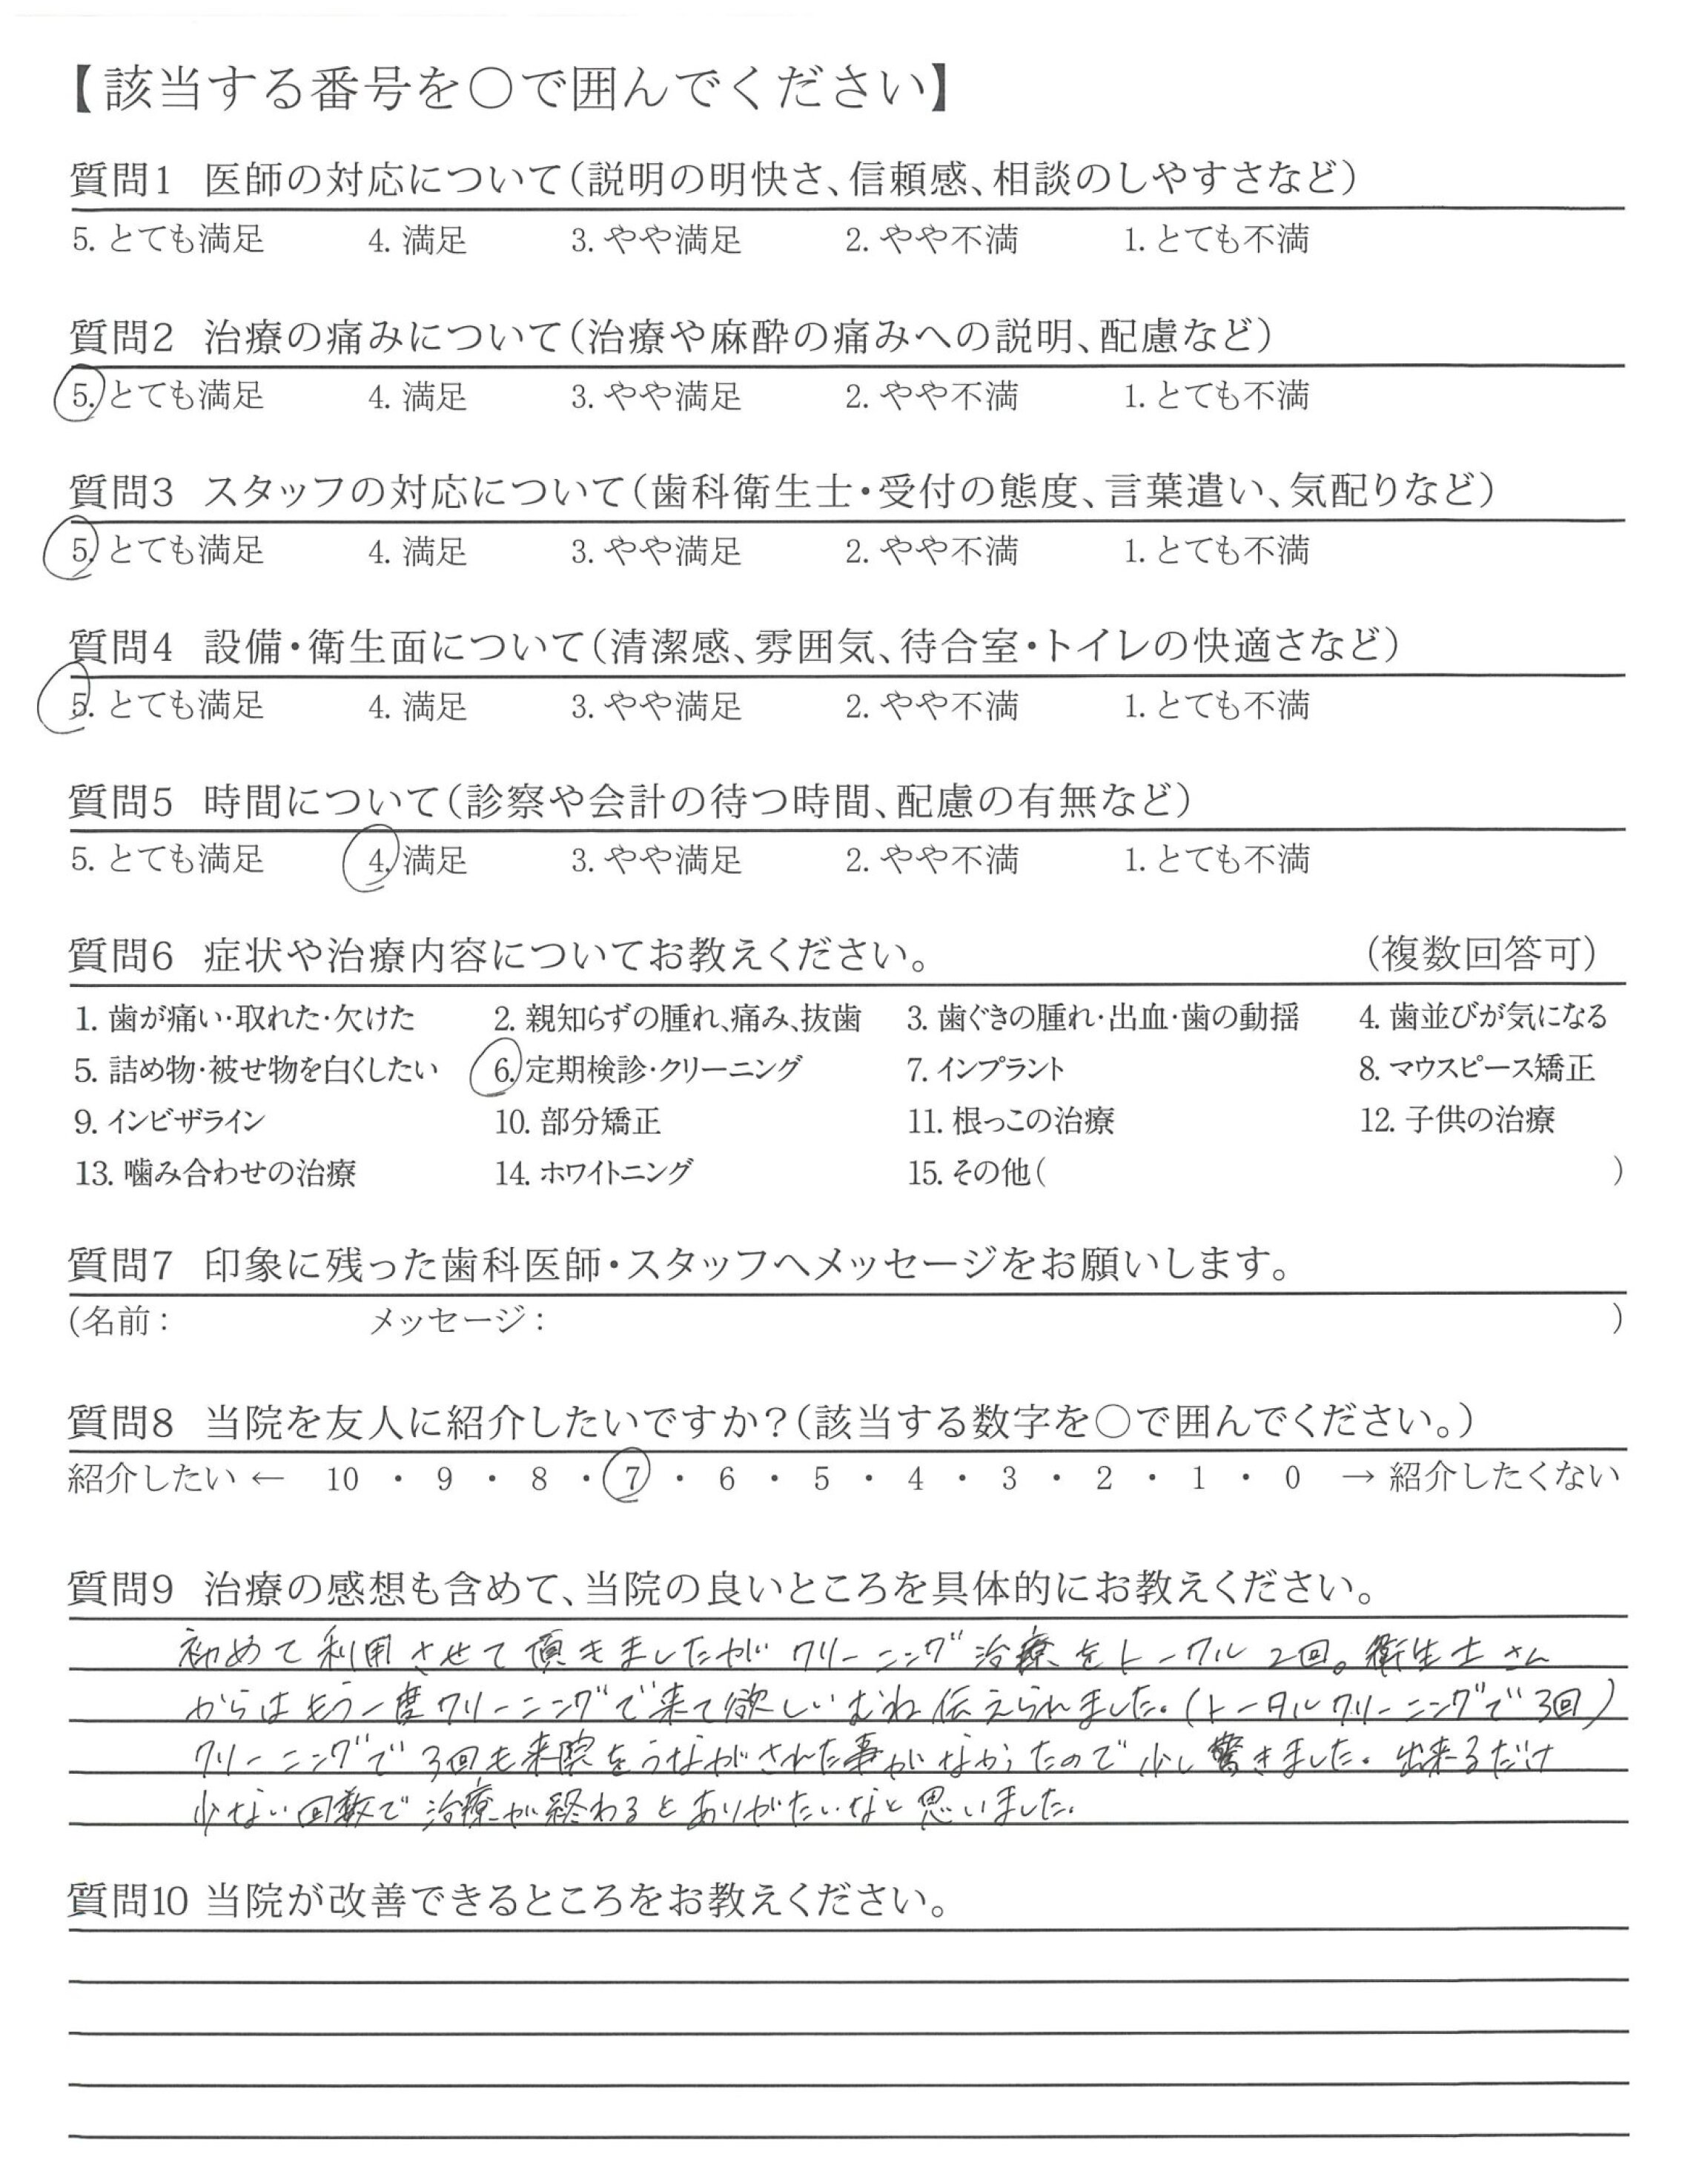 【該当する番号を○で囲んでください】
質問1 医師の対応について(説明の明快さ、信頼感、相談のしやすさなど)
5. とても満足 4. 満足 3. やや満足 2. やや不満 1. とても不満
質問2 治療の痛みについて(治療や麻酔の痛みへの説明、配慮など)
5. とても満足 4. 満足 3. やや満足 2. やや不満 1. とても不満
質問3 スタッフの対応について(歯科衛生士・受付の態度、言葉遣い、気配りなど)
5. とても満足 4. 満足 3. やや満足 2. やや不満 1. とても不満
質問4 設備・衛生面について(清潔感、雰囲気、待合室・トイレの快適さなど)
5. とても満足 4. 満足 3. やや満足 2. やや不満 1. とても不満
質問5 時間について(診察や会計の待つ時間、配慮の有無など)
5. とても満足 4. 満足 3. やや満足 2. やや不満 1. とても不満
質問6 症状や治療内容についてお教えください。 (複数回答可)
1. 歯が痛い・取れた・欠けた 2. 親知らずの腫れ、痛み、抜歯 3. 歯ぐきの腫れ・出血・歯の動揺 4. 歯並びが気になる
5. 詰め物・被せ物を白くしたい 6. 定期検診・クリーニング 7. インプラント 8. マウスピース矯正
9. インビザライン 10. 部分矯正 11. 根っこの治療 12. 子供の治療
13. 噛み合わせの治療 14. ホワイトニング 15. その他( )
質問7 印象に残った歯科医師・スタッフへメッセージをお願いします。
(名前: メッセージ: )
質問8 当院を友人に紹介したいですか?(該当する数字を○で囲んでください。)
紹介したい ← 10 ・ 9 ・ 8 ・ 7 ・ 6 ・ 5 ・ 4 ・ 3 ・ 2 ・ 1 ・ 0 → 紹介したくない
質問9 治療の感想も含めて、当院の良いところを具体的にお教えください。
初めて利用させて頂きましたが クリーニング治療をトータル2回。衛生士さん
からはもう一度クリーニングで来て欲しいむね伝えられました。(トータルクリーニングで3回)
クリーニングで3回も来院をうながされた事がなかったので少し驚きました。出来るだけ
少ない回数で治療が終わるとありがたいなと思いました。
質問10 当院が改善できるところをお教えください。